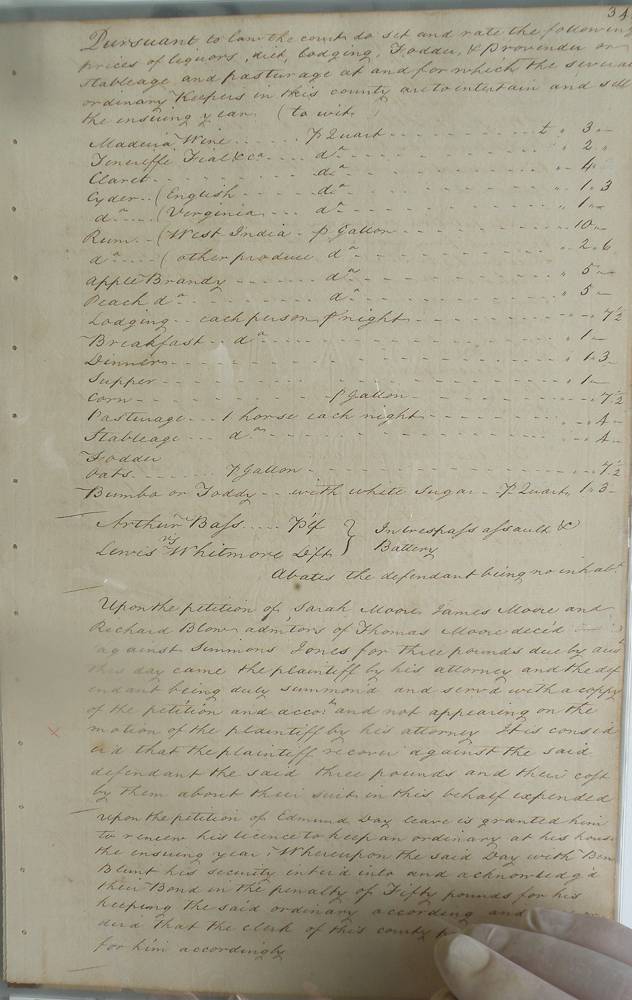 34
Pursuant to law the court do set and rate the following
prices of liquors, diet, lodging, Fodder, & Provender or
stableage and pasturage at and for which the several
ordinary keepers in this county are to entertain and sell
the ensuing year. (to wit,
Madeira Wine ...... p Quart - - - - - - - - £ " 3 "—
Teneriffe Fial &ca ... do - - - - - - - - " 2 "
Claret - - - - - - do - - - - - - - - " 4 —
Cyder .. (English - - - - - do - - - - - - - - " 1 " 3
do .... (Virginia .... do - - - - - - - - " 1 " —
Rum .. (West India - p Gallon - - - - - - - 10 " —
do .... (other produce do - - - - - - - - " 2 " 6
Apple Brandy - - - - - - do - - - - - - - - " 5 " —
Peach do - - - - - - - do - - - - - - - - " 5 —
Lodging .. each person p night - - - - - - - - " — " 7½
Breakfast .. do - - - - - - - - " 1 —
Dinner - - - - - - - - " 1 " 3
Supper - - - - - - - - " 1 —
Corn - - - - - - p Gallon - - - - - - - - " 7½
Pasturage ... 1 horse each night - - - - - - - - " 4 —
Stableage ... do - - - - - - - - " 4 —
Fodder
Oats - - - - - - p Gallon - - - - - - - - 7½
Bumbo or Toddy - - with white sugar - p Quart " 1 " 3 —
Arthur Bass ..... Plf } In trespass assault &
vs
Lewis Whitmore Deft } Battery
Abates the defendant being no inhabt
Upon the petition of Sarah Moore James Moore and
Richard Blow admtors of Thomas Moore dec'd
against Simmons Jones for three pounds due by
this day came the plaintiff by his attorney and the def
endant being duly summon'd and serv'd with a coppy
of the petition and accot and not appearing on the
motion of the plaintiff by his attorney It is consid
er'd that the plaintiff recover against the said
defendant the said three pounds and their cost
by them about their suit in this behalf expended
Upon the petition of Edmund Day leave is granted him
to renew his licence to keep an ordinary at his house
the ensuing year, Whereupon the said Day with
Blunt his security enter'd into and acknowledg'd
their Bond in the penalty of Fifty pounds for his
keeping the said ordinary according and
der'd that the clerk of this county
for him accordingly